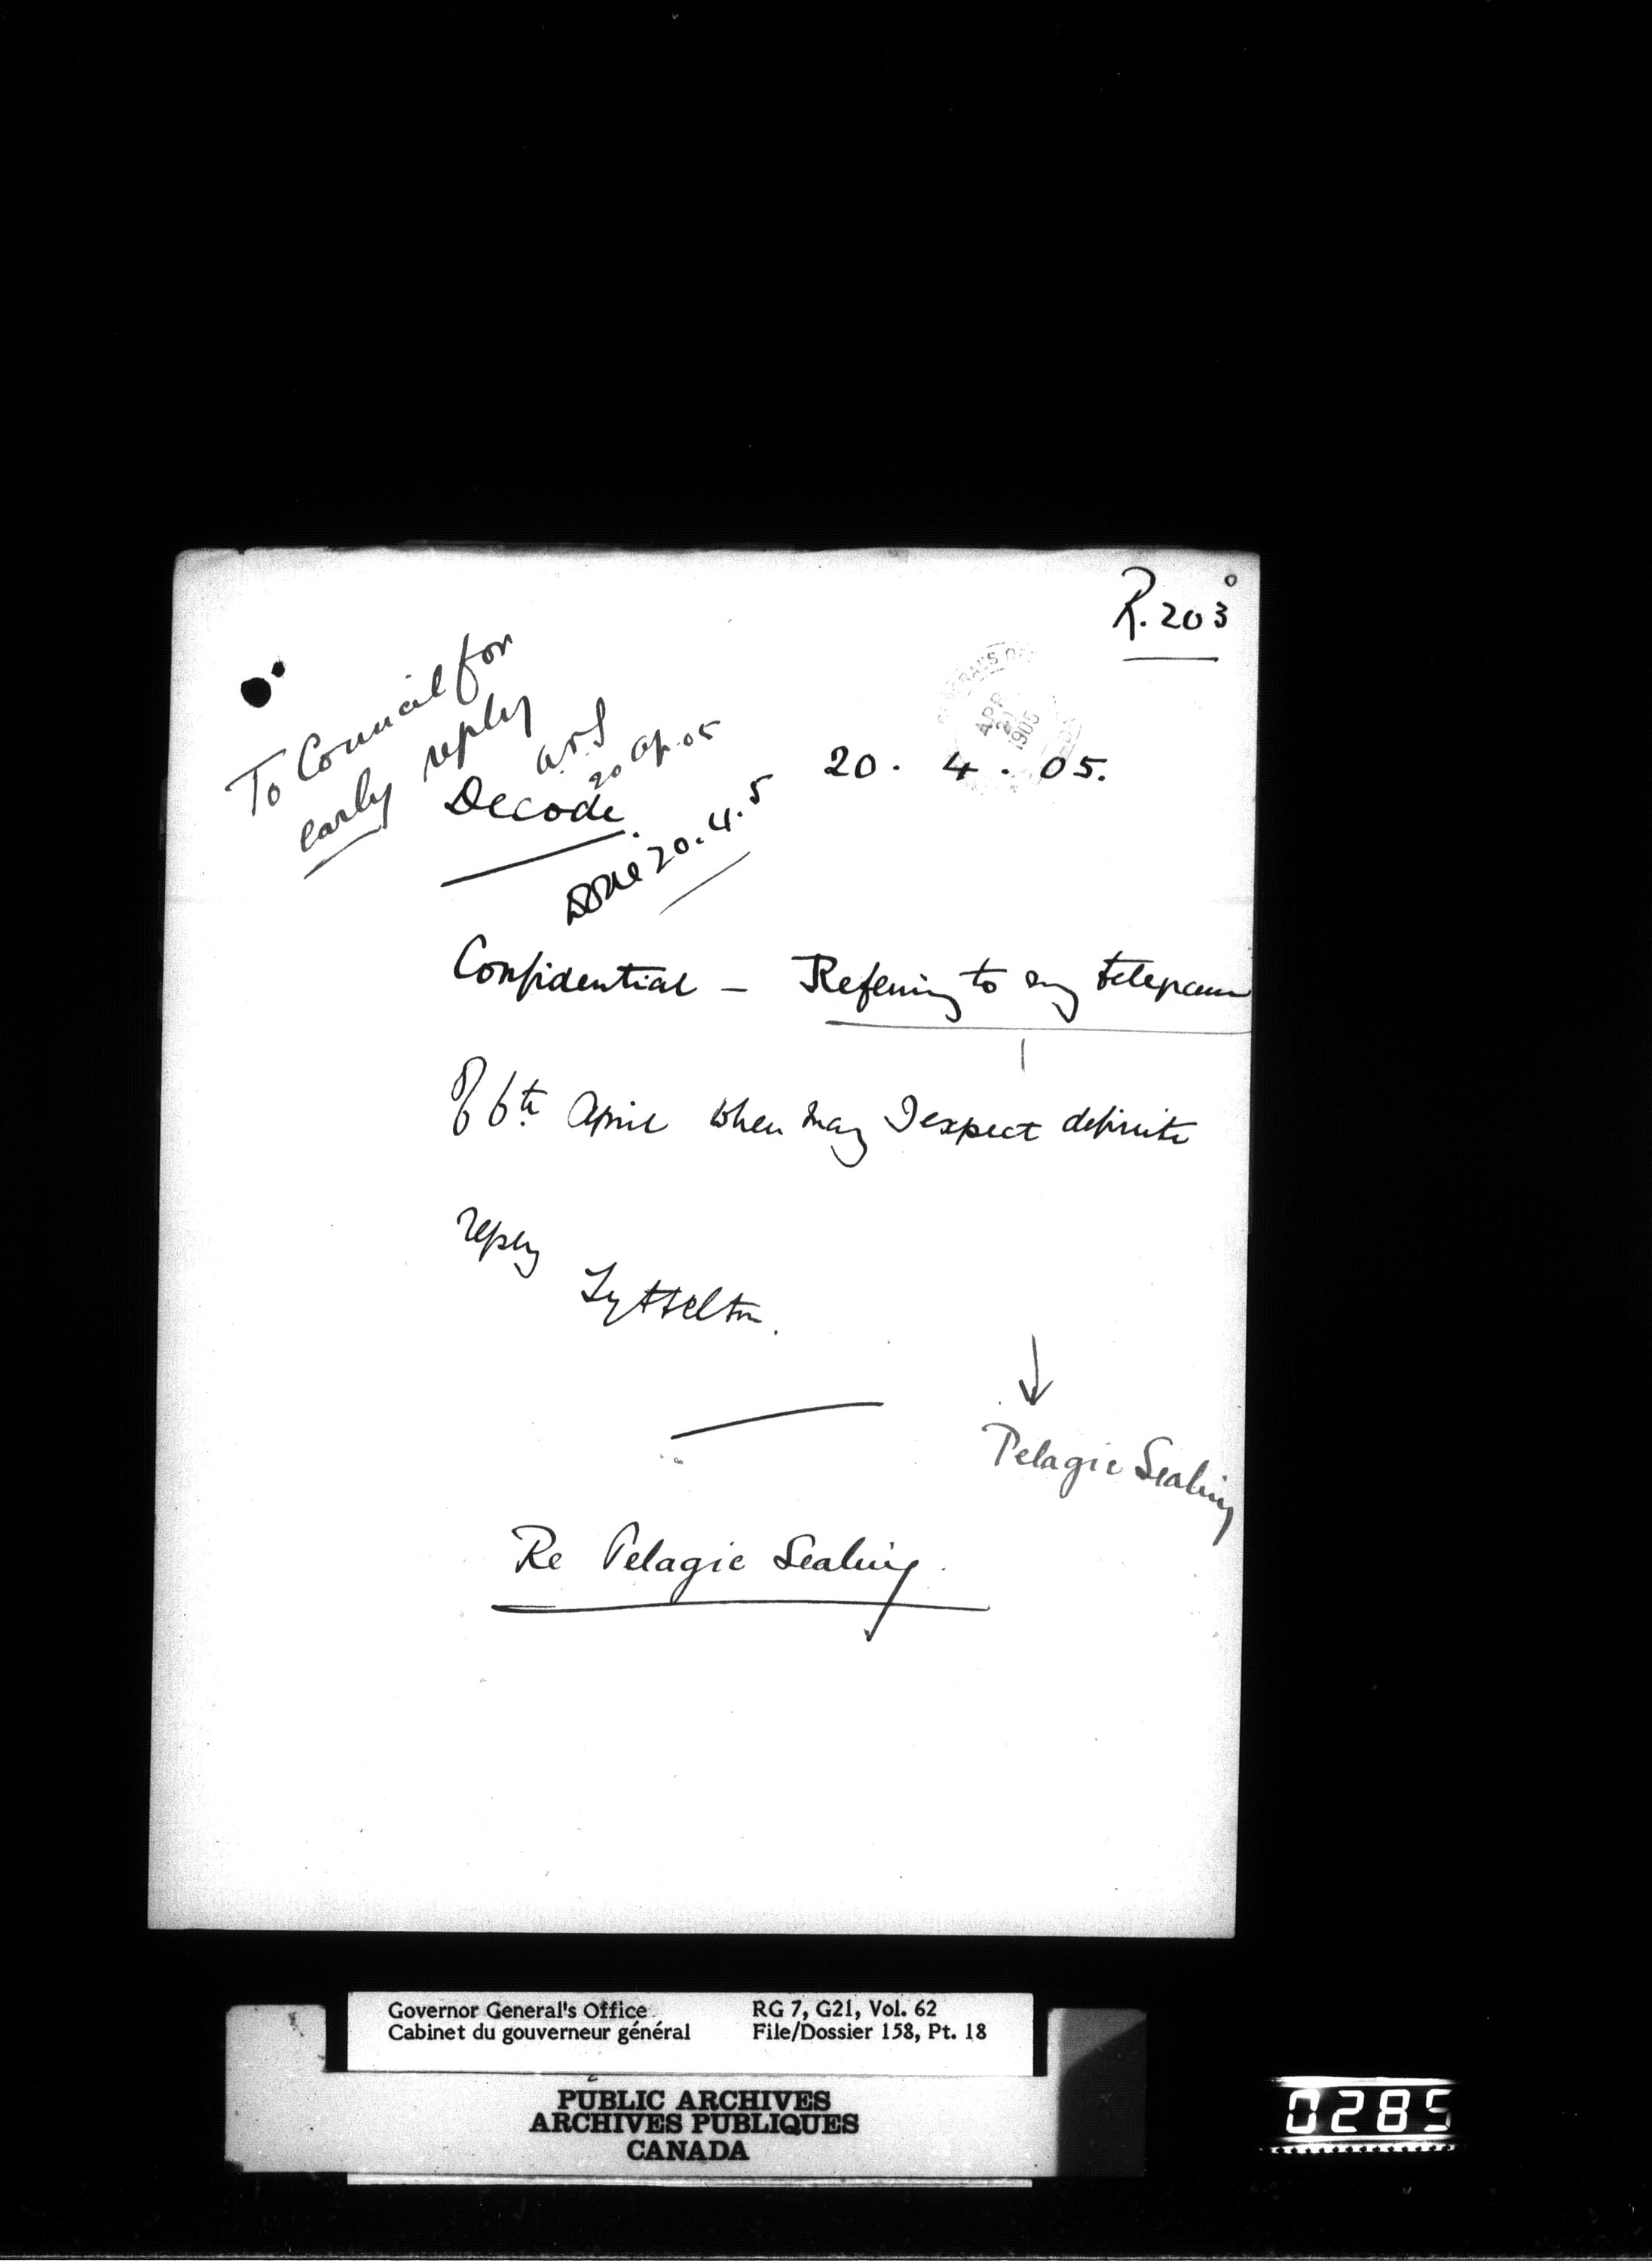 R. 203
To Council for
early reply
20 ap. 05
APR
1905
20 . 4 . 05.
Decode.
Done 20.4.5
Confidential – Referring to my telegram
of 6th April when may I expect definite
reply
Lyttelton.
Pelagic Sealing
Re Pelagic Sealing.
Governor General's Office RG 7, G21, Vol. 62
Cabinet du gouverneur général File/Dossier 158, Pt. 18
PUBLIC ARCHIVES
ARCHIVES PUBLIQUES
CANADA
0285